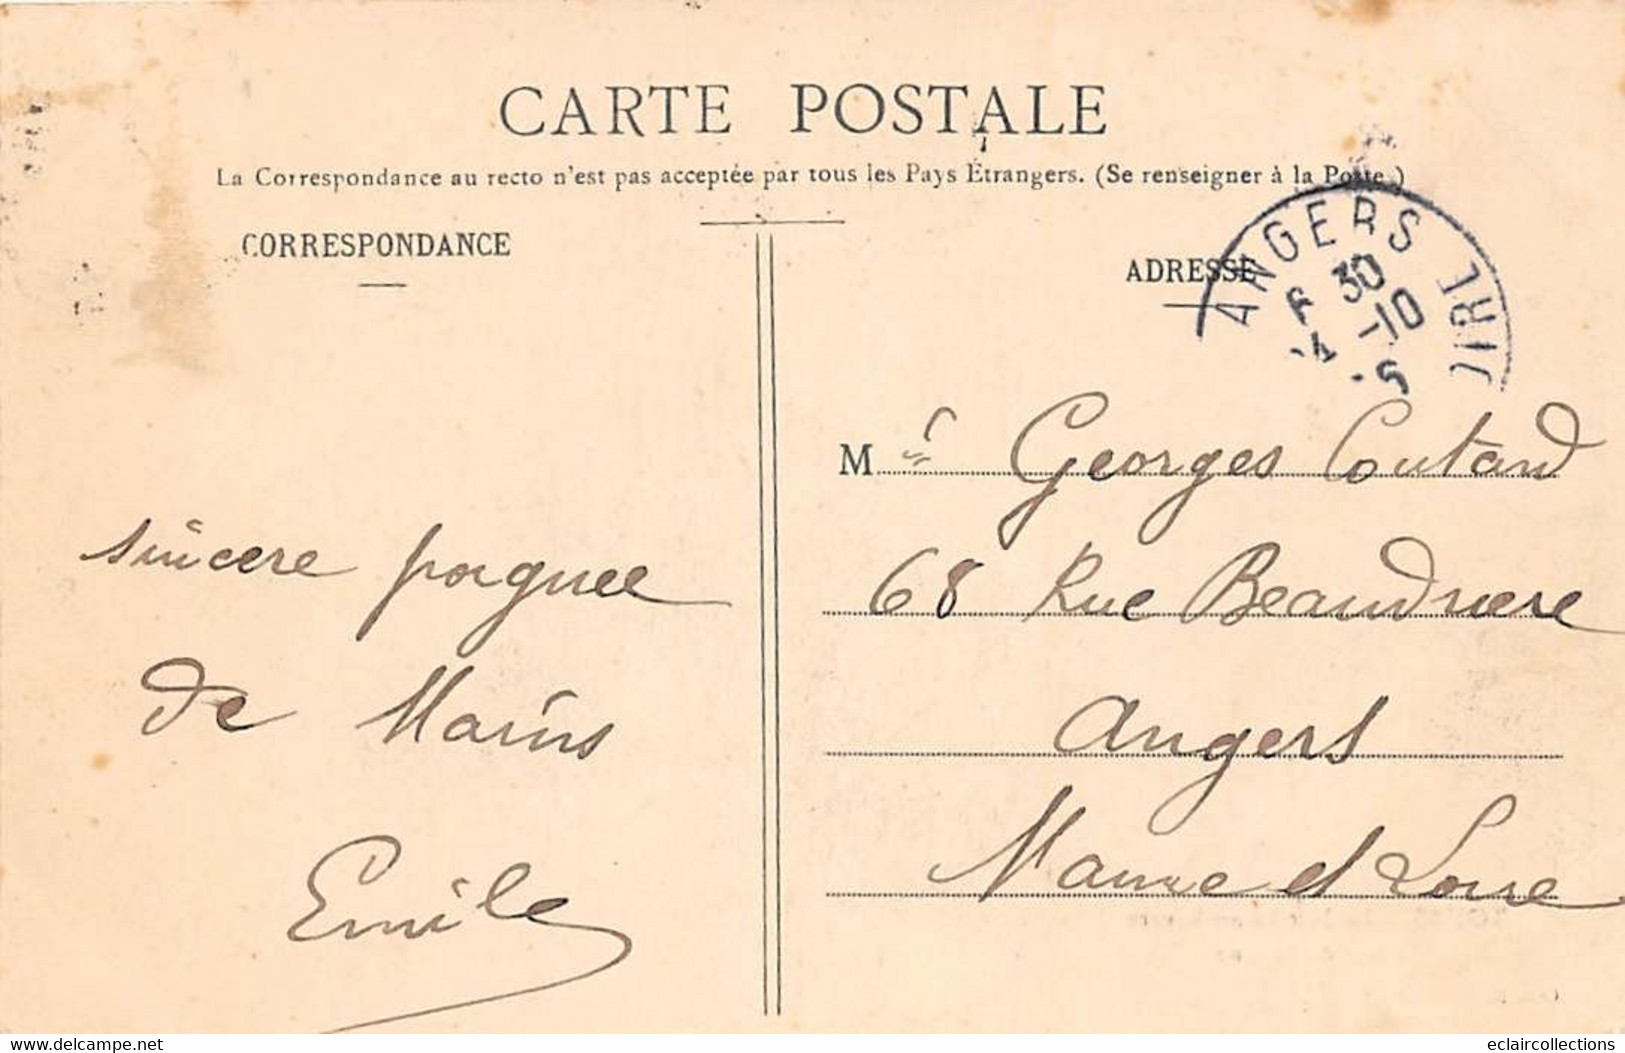 CARTE POSTALE
La Correspondance au recto n'est pas acceptée par tous les Pays Étrangers. (Se renseigner à la Poste.)
CORRESPONDANCE
ADRESSE
ANGERS
30
-10
M Georges Coutard
68 Rue Beaudriere
Angers
Maine et Loire
sincere poignee
de Mains
Emile
www.delcampe.net
eclaircollections